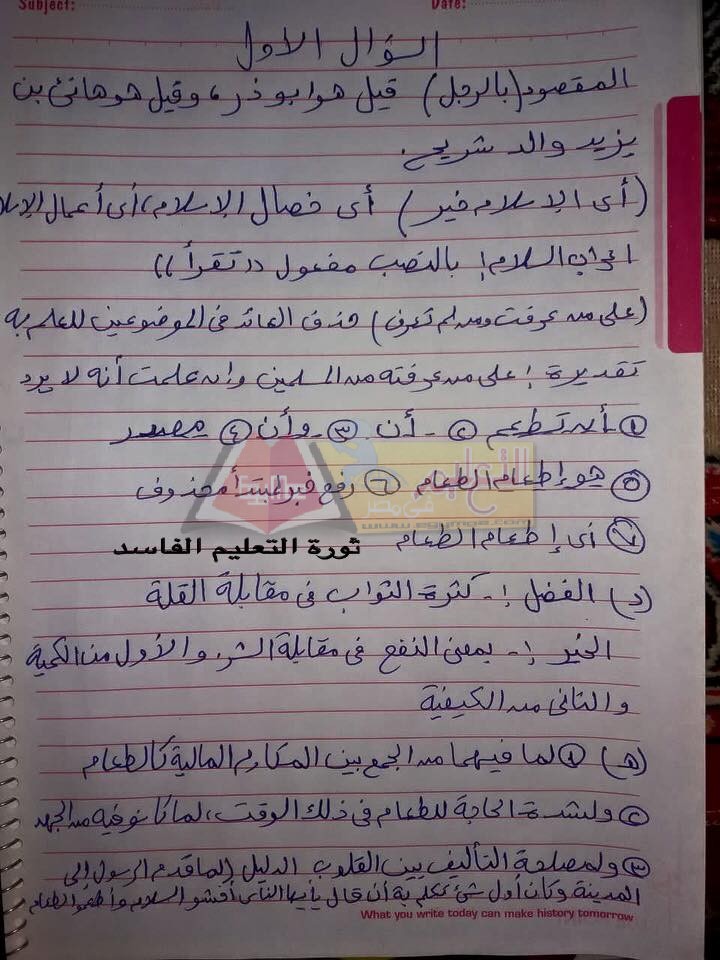 Subject:
Date:
السؤال الأول
المقصود (بالرجل) قيل هو ابو ذر، وقيل هو هانئ بن
يزيد والد شريح.
(أى الإسلام خير) أى خصال الإسلام، أى أعمال
اعراب السلام: بالنصب مفعول ((تقرأ))
(على من عرفت ومن لم تعرف) حذف العائد فى الموضوعين للعلم به
تقديرة: على من عرفته من المسلمين وإن علمت أنه لا يرد
١ أن تطعم ٢- أن ٣- وأن ٤ مصدر
٥ هو إطعام الطعام ٦ رفع خبر لمبتدأ محذوف
٧ أى إطعام الطعام
ثورة التعليم الفاسد
(د) الفضل :- كثرة الثواب فى مقابلة القلة
الخير :- بمعنى النفع فى مقابلة الشر والأول من الكمية
والثانى من الكيفية
(هـ) ١ لما فيهما من الجمع بين المكارم المالية كالطعام
٢ ولشدة الحاجة للطعام فى ذلك الوقت، لما كانو فيه من الجهد
٣ ولمصلحة التأليف بين القلوب الدليل (لما قدم الرسول إلى
المدينة وكان أول شئ تكلم به أن قال يأيها الناس أفشو السلام وأطعموا الطعام
What you write today can make history tomorrow